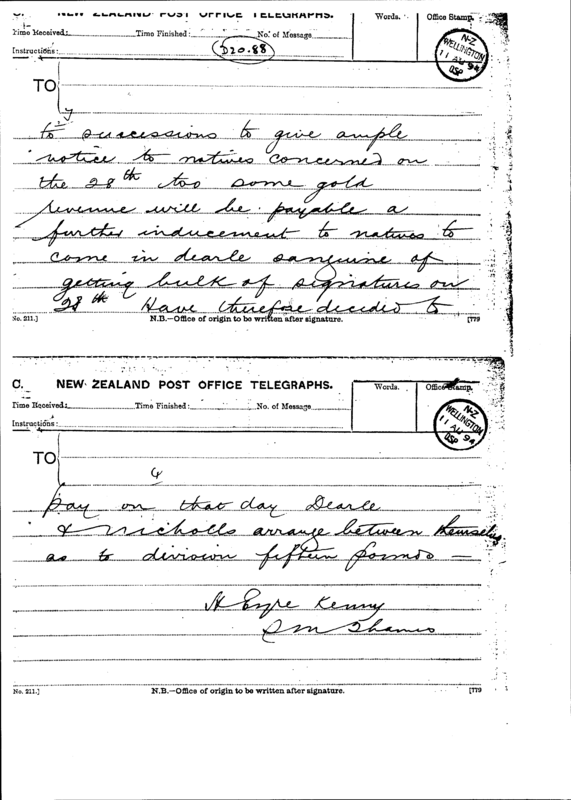 C. NEW ZEALAND POST OFFICE TELEGRAPHS.
Words.
Office Stamp.
Time Received: Time Finished: No. of Message
Instructions: D20.88
N-Z WELLINGTON 11 AU 94 OSP
TO
to successions to give ample
notice to natives concerned on
the 28th too some gold
revenue will be payable a
further inducement to natives to
come in dearle sanguine of
getting bulk of signatures on
28th Have therefore decided to
No. 211.] N.B.—Office of origin to be written after signature. [779
C. NEW ZEALAND POST OFFICE TELEGRAPHS.
Words.
Office Stamp.
Time Received: Time Finished: No. of Message
Instructions:
N-Z WELLINGTON 11 AU 94 OSP
TO
4
pay on that day Dearle
& Nicholls arrange between themselves
as to division fifteen pounds —
H Eyre Kenny
SM Thames
No. 211.] N.B.—Office of origin to be written after signature. [779